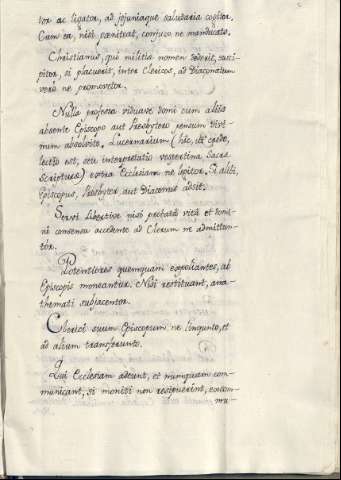 tor ac ligator, ad jejuniaque salutaria cogitor.
Cum ea, nisi pœniteat, conjux ne manducato.
Christianus, qui militiæ nomen dederit, susci-
pitor, si placuerit, inter Clericos, ad Diaconatum
vero ne promovetor.
Nulla professa viduave domi cum aliis
absente Episcopo aut Presbytero pensum divi-
num absolvito. Lucernarium (hæc, ut credo,
lectio est, seu interpretatio vespertina Sacræ
Scripturæ) extra Ecclesiam ne legitor. Si aliter,
Episcopus, Presbyter aut Diaconus adsit.
Servi Libertive nisi probata vita et domi-
ni consensu accedente ad Clerum ne admitten-
tor.
Potentiores quemquam expoliantes, ab
Episcopis moneantur. Nisi restituant, ana-
themati subjacentor.
Clerici suum Episcopum ne linquunto, et
ad alium transferunto.
Qui Ecclesiam adeunt, et nunquam com-
municant, si moniti non resipuerint, excom-
mu-